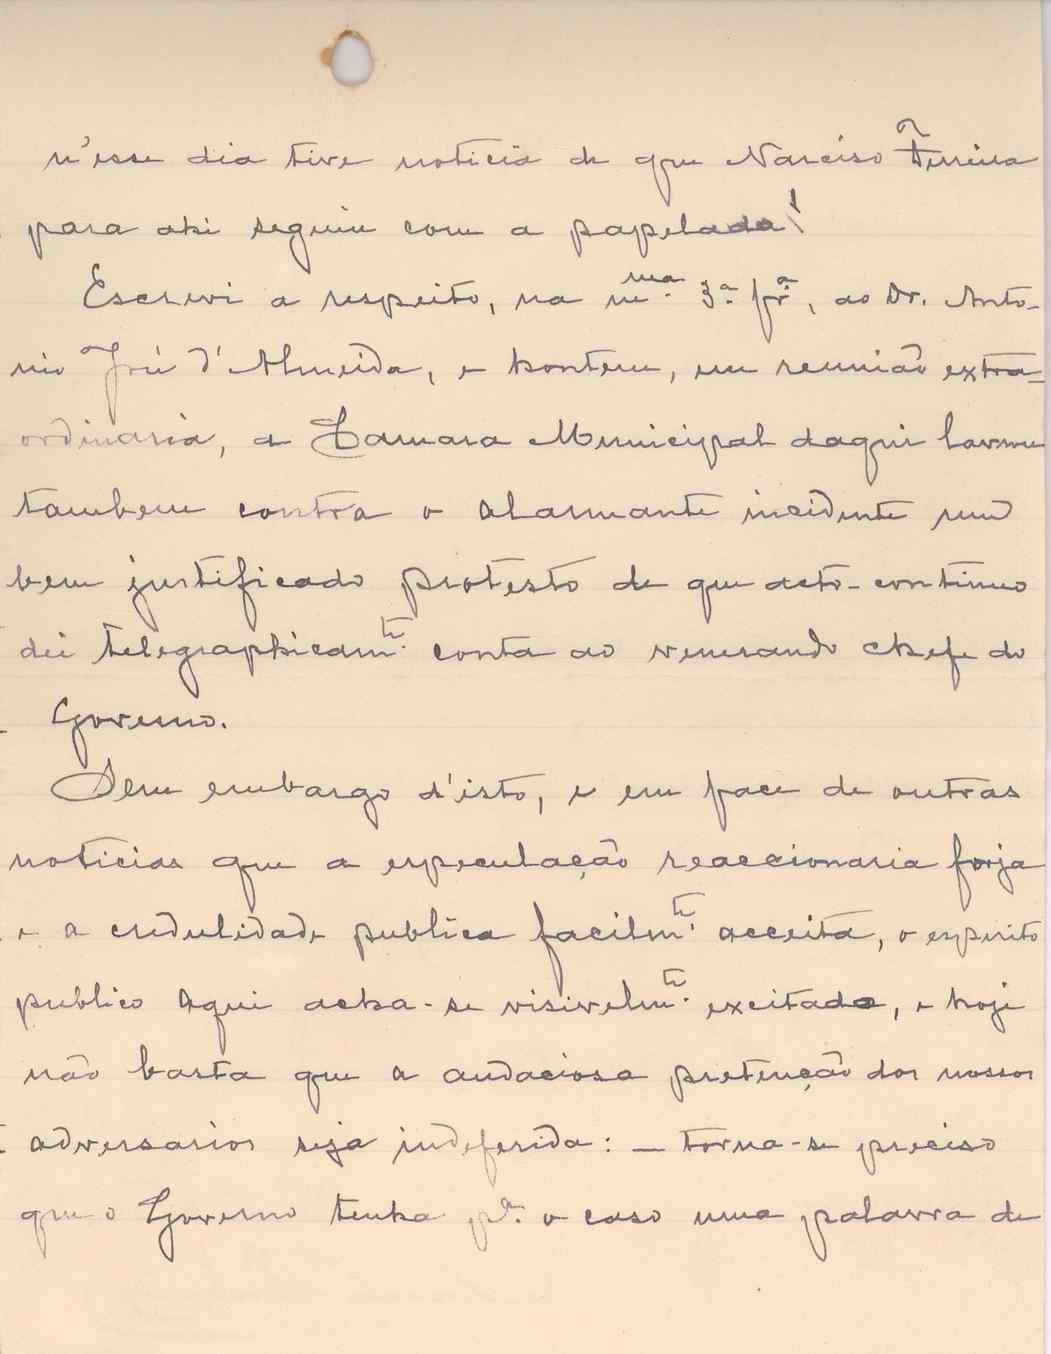 n'esse dia tive noticia de que Narciso Ferreira
para ahi seguiu com a papelada!
Escrevi a respeito, na m.ma 3.a fr.a, ao Dr. Anto-
nio José d'Almeida, e hontem, em reunião extra-
ordinaria, a Camara Municipal daqui lavrou
tambem contra o alarmante incidente um
bem justificado protesto de que acto-continuo
dei telegraphicam.te conta ao venerando chefe do
Governo.
Sem embargo d'isto, e em face de outras
noticias que a especulação reaccionaria forja
e a credulidade publica facilm.te acceita, o espirito
publico aqui acha-se visivelm.te excitado, e hoje
não basta que a audaciosa pretenção dos nossos
adversarios seja indeferida: — torna-se preciso
que o Governo tenha p.a o caso uma palavra de